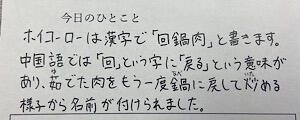 今日のひとこと
ホイコーローは漢字で「回鍋肉」と書きます。
中国語では「回」という字に「戻る」という意味が
あり、茹でた肉をもう一度鍋に戻して炒める
様子から名前が付けられました。